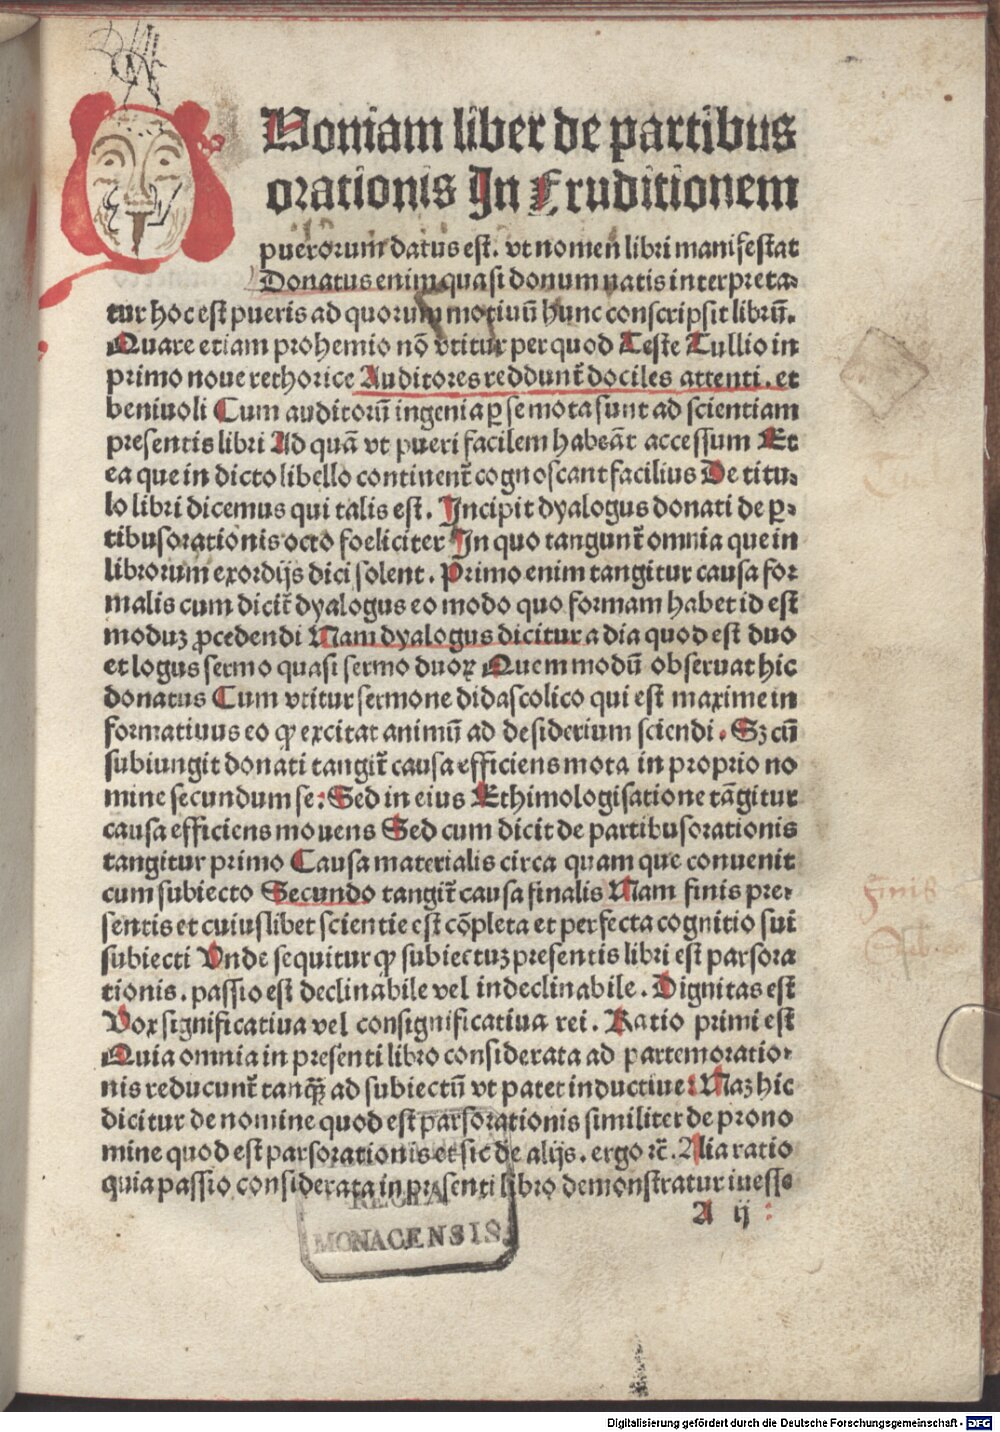 Uoniam liber de partibus
orationis In Eruditionem
puerorum datus est. vt nomen libri manifestat
Donatus enim quasi donum natis interpreta⸗
tur hoc est pueris ad quorum motiuū hunc conscripsit librū.
Quare etiam prohemio nō vtitur per quod Teste Tullio in
primo noue rethorice Auditores reddunt̄ dociles attenti. et
beniuoli Cum auditorū ingenia ꝑ se mota sunt ad scientiam
presentis libri Ad quā vt pueri facilem habeāt accessum Et
ea que in dicto libello continent̄ cognoscant facilius De titu⸗
lo libri dicemus qui talis est. Incipit dyalogus donati de ꝑ⸗
tibusorationis octo foeliciter In quo tangunt̄ omnia que in
librorum exordijs dici solent. Primo enim tangitur causa for
malis cum dicit̄ dyalogus eo modo quo formam habet id est
moduꝫ ꝓcedendi Nam dyalogus dicitur a dia quod est duo
et logus sermo quasi sermo duoꝝ Quem modū obseruat hic
donatus Cum vtitur sermone didascolico qui est maxime in
formatiuus eo ꝙ excitat animū ad desiderium sciendi. Sꝫ cū
subiungit donati tangit̄ causa efficiens mota in proprio no
mine secundum se: Sed in eius Ethimologisatione tāgitur
causa efficiens mouens Sed cum dicit de partibusorationis
tangitur primo Causa materialis circa quam que conuenit
cum subiecto Secundo tangit̄ causa finalis Nam finis pre⸗
sentis et cuiuslibet scientie est cōpleta et perfecta cognitio sui
subiecti Vnde sequitur ꝙ subiectuꝫ presentis libri est parsora
tionis. passio est declinabile vel indeclinabile. Dignitas est
Vox significatiua vel consignificatiua rei. Ratio primi est
Quia omnia in presenti libro considerata ad partemoratio⸗
nis reducunt̄ tanqꝫ̄ ad subiectū vt patet inductiue: Naꝫ hic
dicitur de nomine quod est parsorationis similiter de prono
mine quod est parsorationis et sic de alijs. ergo ꝛc̄. Alia ratio
quia passio considerata in presenti libro demonstratur inesse
A ij
REGIA
MONACENSIS
finis
Digitalisierung gefördert durch die Deutsche Forschungsgemeinschaft - DFG